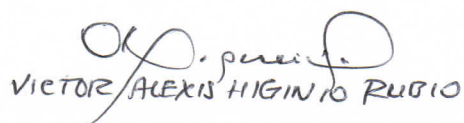 VICTOR ALEXIS HIGINIO RUBIO